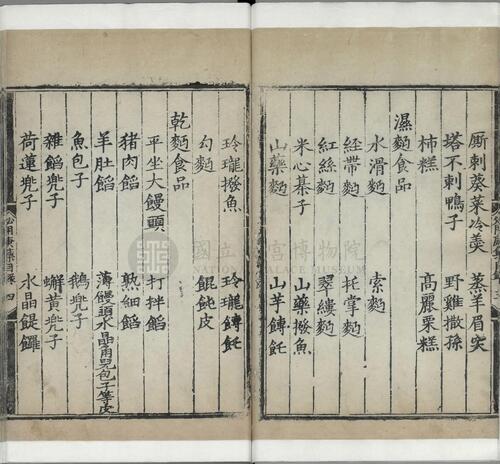 厮剌葵菜冷羹 蒸羊眉突
塔不剌鴨子 野雞撒孫
柿糕 高麗栗糕
濕麪食品
水滑麪 索麪
經帶麪 托掌麪
紅絲麪 翠縷麪
米心棊子 山藥撥魚
山藥麪 山芋餺飥
玲瓏撥魚 玲瓏餺飥
勾麪 餛飩皮
乾麪食品
平坐大饅頭 打拌餡
猪肉餡 熟細餡
羊肚餡 薄饅頭水晶角兒包子等皮
魚包子 鵝兠子
雜餡兠子 蠏黃兠子
荷蓮兠子 水晶䭔䭔
四
國立故宮博物院